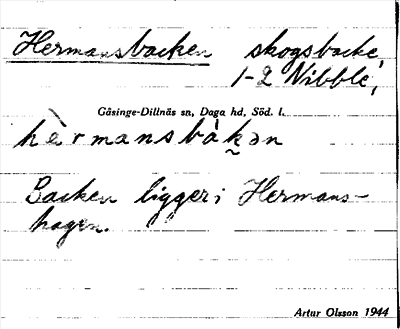 Hermansbacken skogsbacke,
1-2 Nibble,
Gåsinge-Dillnäs sn, Daga hd, Söd. l.
hèrmansbàk̬ən
Backen ligger i Hermans-
hagen.
Artur Olsson 1944